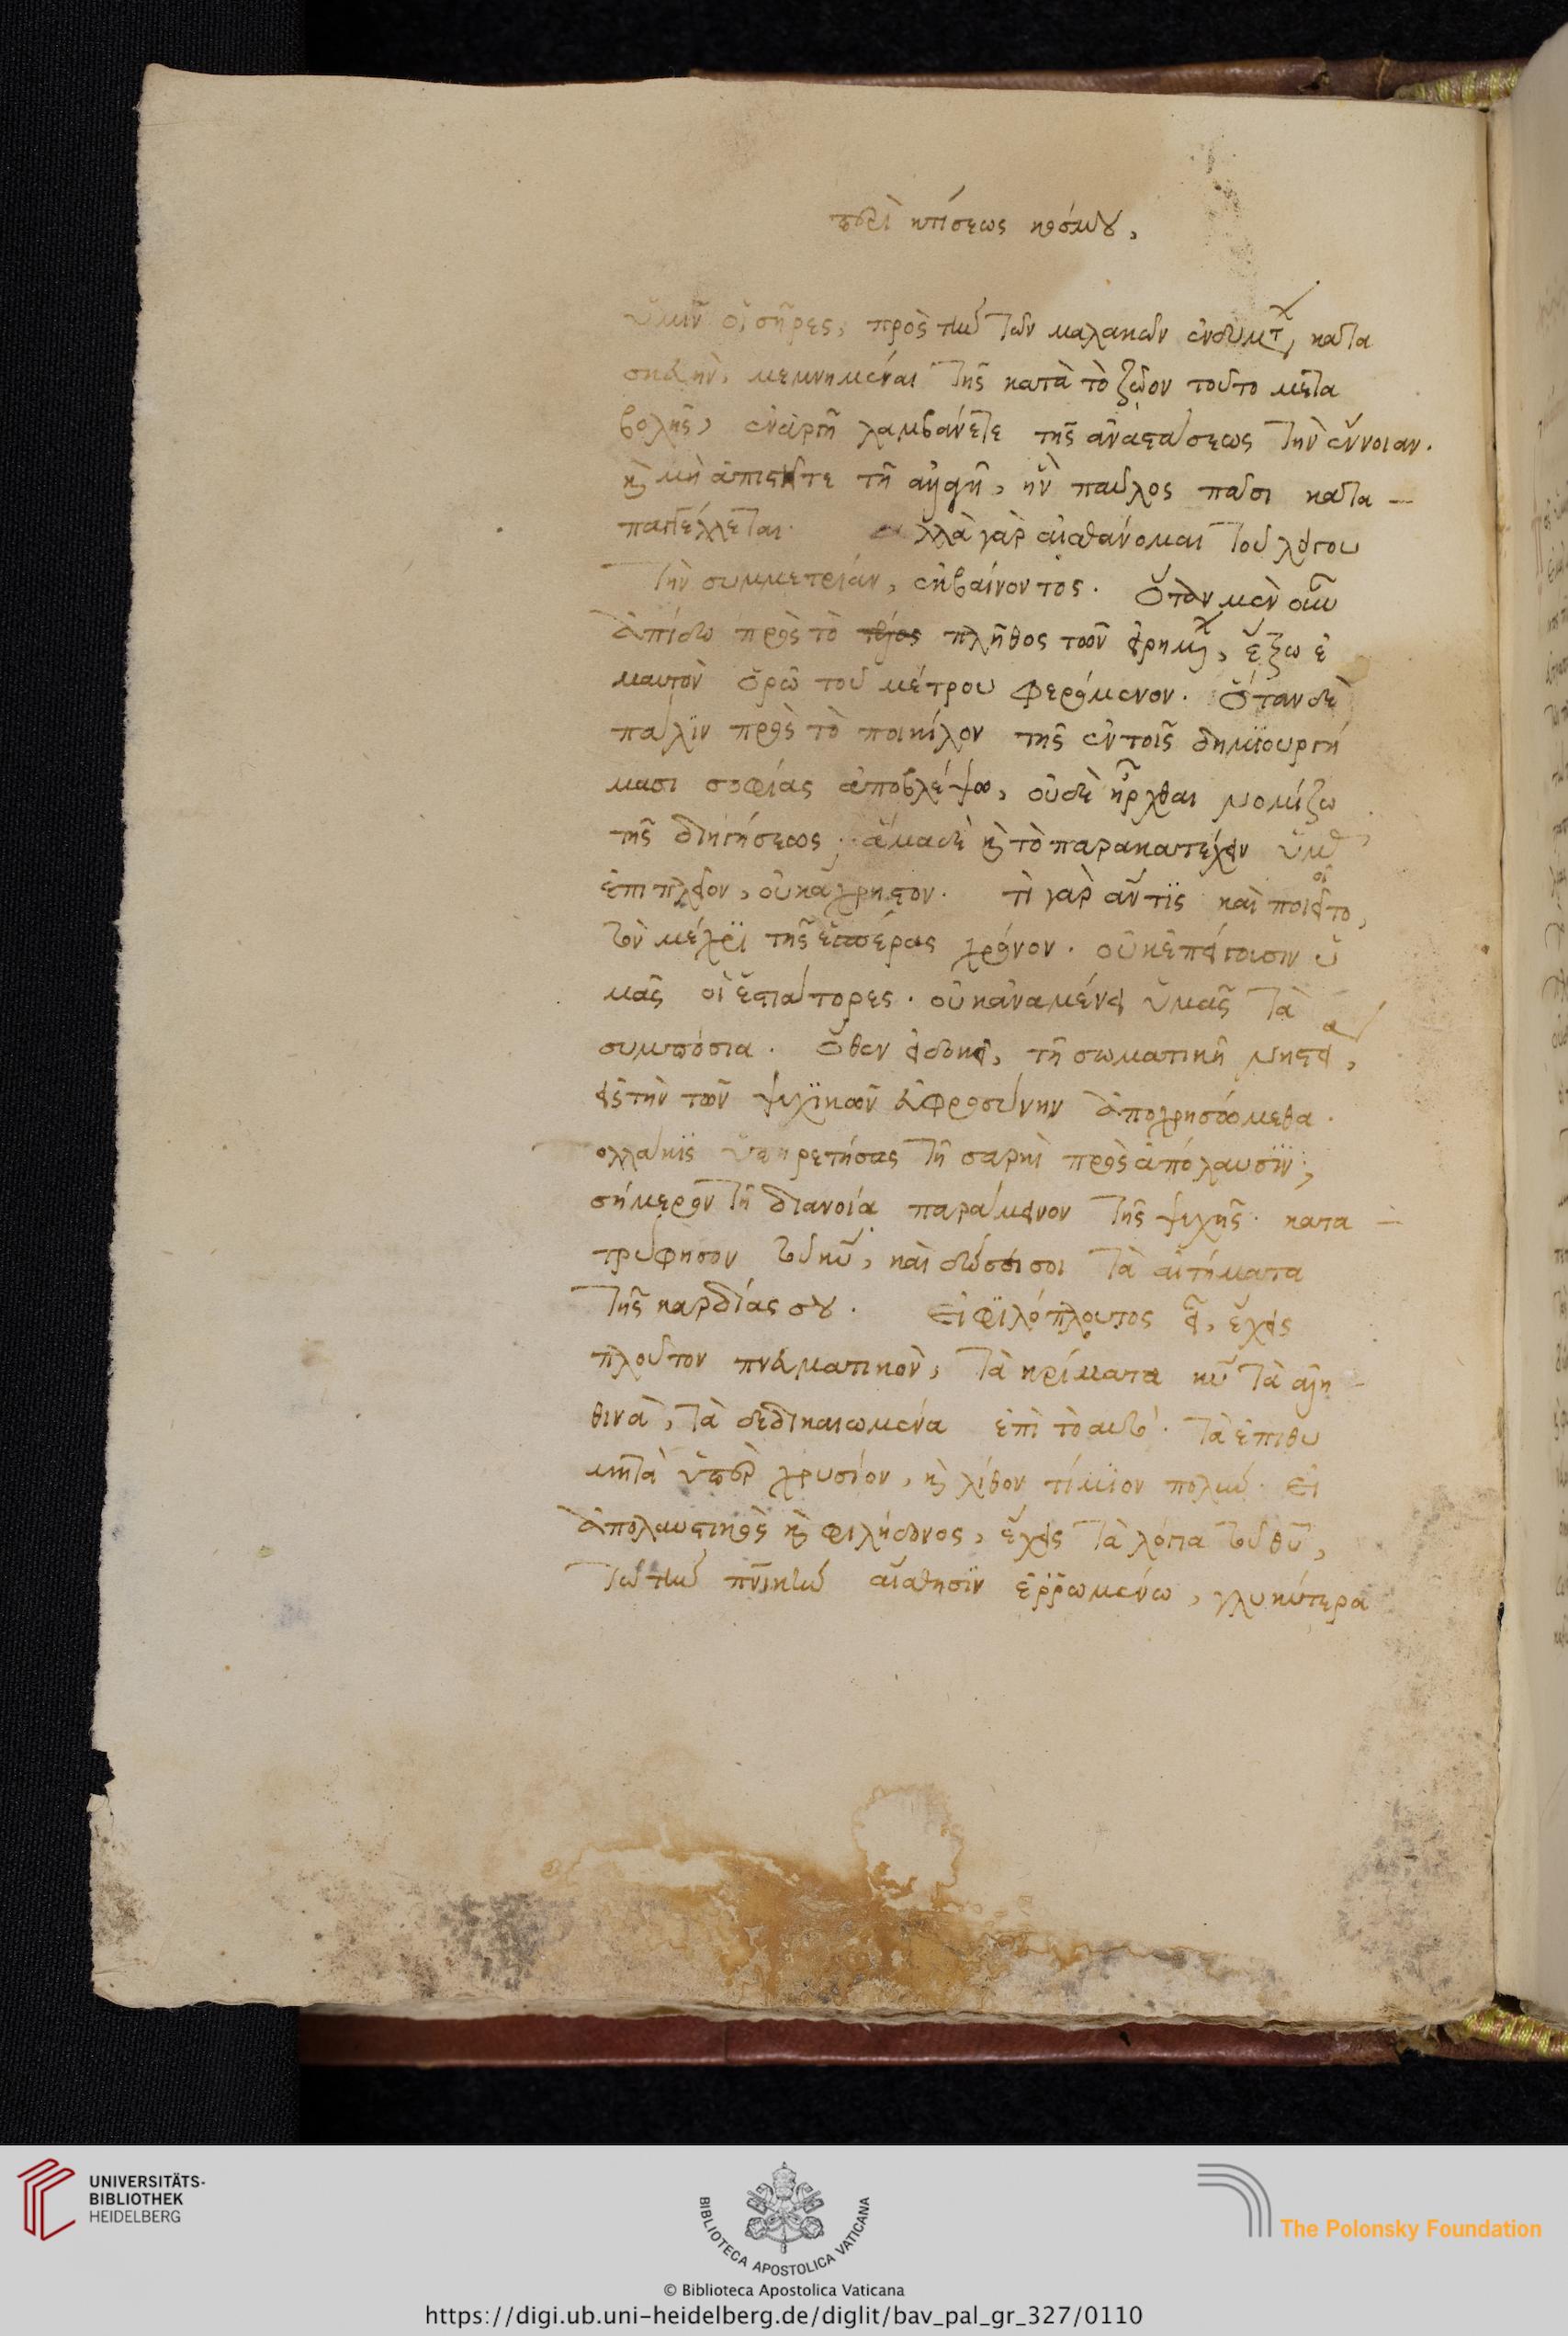 περὶ κτίσεως κόσμου,
ὑμῖν οἱ σῆρες, πρὸς τὴν τῶν μαλακῶν ἐνδυμάτ(ων) κατα
σκευὴν, μεμνημέναι τῆς κατὰ τὸ ζῶον τοῦτο μετα
βολῆς, ἐναργῆ λαμβάνετε τῆς ἀναστάσεως τὴν ἔννοιαν.
κ(αὶ) μὴ ἀπιστεῖτε τῆ ἀλλαγῆ, ἣν παῦλος πᾶσι κατα
παγγέλλεται. ἀλλὰ γὰρ αἰσθάνομαι τοῦ λόγου
τὴν συμμετρίαν, ἐκβαίνοντος. Ὅταν μὲν οὖν
ἀπίδω πρὸς τὸ πλῆθος τῶν εἰρημ(έ)ν(ων), ἔξω ἐ
μαυτὸν ὁρῶ τοῦ μέτρου φερόμενον. Ὅταν δὲ
πάλϊν πρὸς τὸ ποικίλον τῆς ἐν τοῖς δημϊουργή
μασι σοφίας ἀποβλέψω, οὐδὲ ἦρχθαι νομίζω
τῆς διηγήσεως. ἅμα δὲ κ(αὶ) τὸ παρακατέχειν ὑμᾶς
ἐπιπλεῖον, οὐκ ἄχρηστον. τί γὰρ ἄν τϊς καὶ ποιεῖ οῖ το,
τὸν μέχρϊ τῆς ἑσπέρας χρόνον. οὐκ ἐπείγουσιν ὑ
μᾶς οἱ ἑστιάτορες. οὐκ ἀναμένει ὑμᾶς τὰ
συμπόσια. Ὅθεν εἰ δοκεῖ, τῆ σωματικῆ νηστείᾳ,
εἰς τὴν τῶν ψυχϊκῶν εὐφροσύνην ἀποχρησώμεθα.
ολλάκϊς ὑπηρετήσας τῆ σαρκὶ πρὸς ἀπόλαυσϊν,
σήμερον τῆ διανοία παράμεινον τῆς ψυχῆς. κατα
τρύφησον τοῦ κυ̅, καὶ δώσει σοι τὰ αἰτήματα
τῆς καρδίας σου. Εἰ φϊλόπλουτος εἶ, ἔχεις
πλοῦτον πνευματικὸν, τὰ κρίματα κυ̅ τὰ ἀλη
θινὰ, τὰ δεδικαιωμένα ἐπὶ τὸ αὐτό. τὰ ἐπιθυ
μητὰ ὑπὲρ χρυσίον, κ(αὶ) λίθον τίμϊον πολύν. Εἰ
ἀπολαυστικὸς κ(αὶ) φιλήδονος, ἔχεις τὰ λόγια τοῦ θυ̅,
τῶ τὴν πν̅ικὴν αἴσθησϊν ἐῤῥωμένω, γλυκύτερα
UNIVERSITÄTS-
BIBLIOTHEK
HEIDELBERG
BIBLIOTECA APOSTOLICA VATICANA
The Polonsky Foundation
© Biblioteca Apostolica Vaticana
https://digi.ub.uni-heidelberg.de/diglit/bav_pal_gr_327/0110